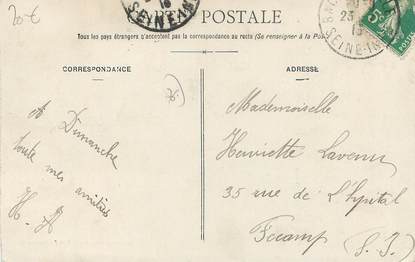 20 €
CARTE POSTALE
Tous les pays étrangers n'acceptent pas la correspondance au recto (Se renseigner à la Poste)
CORRESPONDANCE
ADRESSE
A Dimanche
toute mes amitiés
H. A
Mademoiselle
Henriette Lavenu
35 rue de L'hpital
Fecamp (S. I.)
SEINE-INF
23
SEINE-INF
5